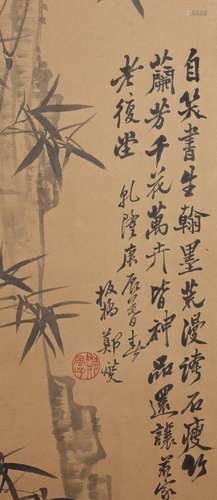 自笑書生翰墨荒漫誇石瘦竹
蘭芳千花萬卉皆神品還讓吾家
老復堂
乾隆庚辰暮春
板橋鄭燮